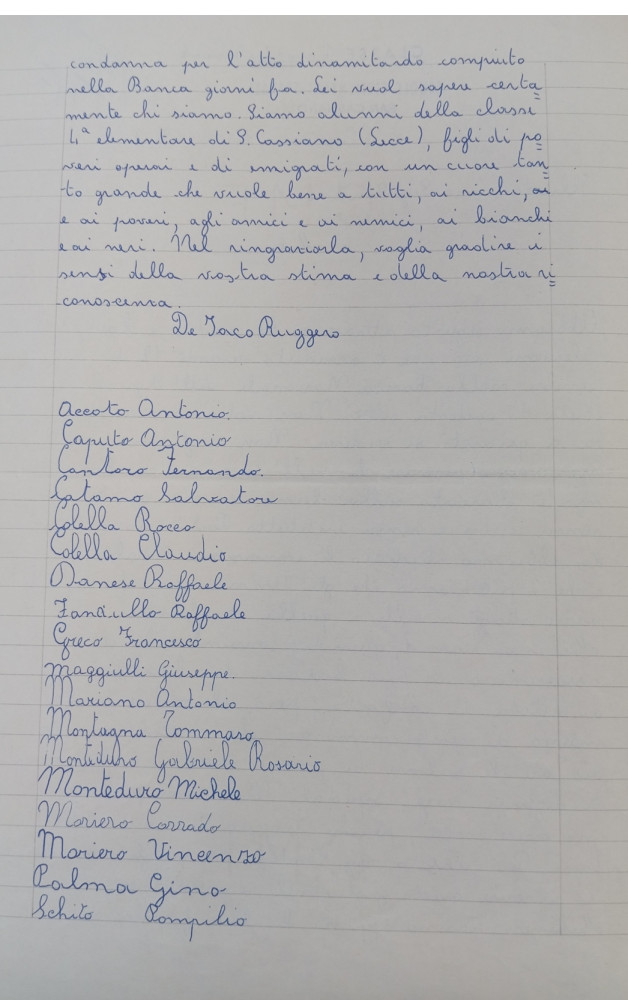 condanna per l'atto dinamitardo compiuto
nella Banca giorni fa. Lei vuol sapere certa=
mente chi siamo. Siamo alunni della classe
4ª elementare di S. Cassiano (Lecce), figli di po=
veri operai e di emigrati, con un cuore tan=
to grande che vuole bene a tutti, ai ricchi,
e ai poveri, agli amici e ai nemici, ai bianchi
e ai neri. Nel ringraziarla, voglia gradire i
sensi della nostra stima e della nostra ri=
conoscenza.
De Iaco Ruggero
Accoto Antonio.
Caputo Antonio
Cantoro Fernando.
Catamo Salvatore
Colella Rocco
Colella Claudio
Danese Raffaele
Fanciullo Raffaele
Greco Francesco
Maggiulli Giuseppe.
Mariano Antonio
Montagna Tommaso
Monteduro Gabriele Rosario
Monteduro Michele
Moriero Corrado
Moriero Vincenzo
Palma Gino
Schito Pompilio